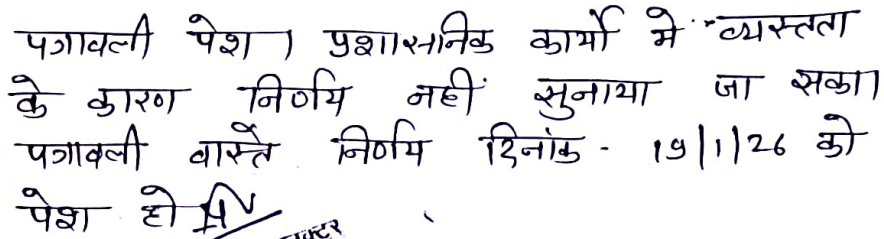 पत्रावली पेश। प्रशासनिक कार्यो मे व्यस्तता
के कारण निर्णय नहीं सुनाया जा सका।
पत्रावली वास्ते निर्णय दिनांक - 19/1/26 को
पेश हो